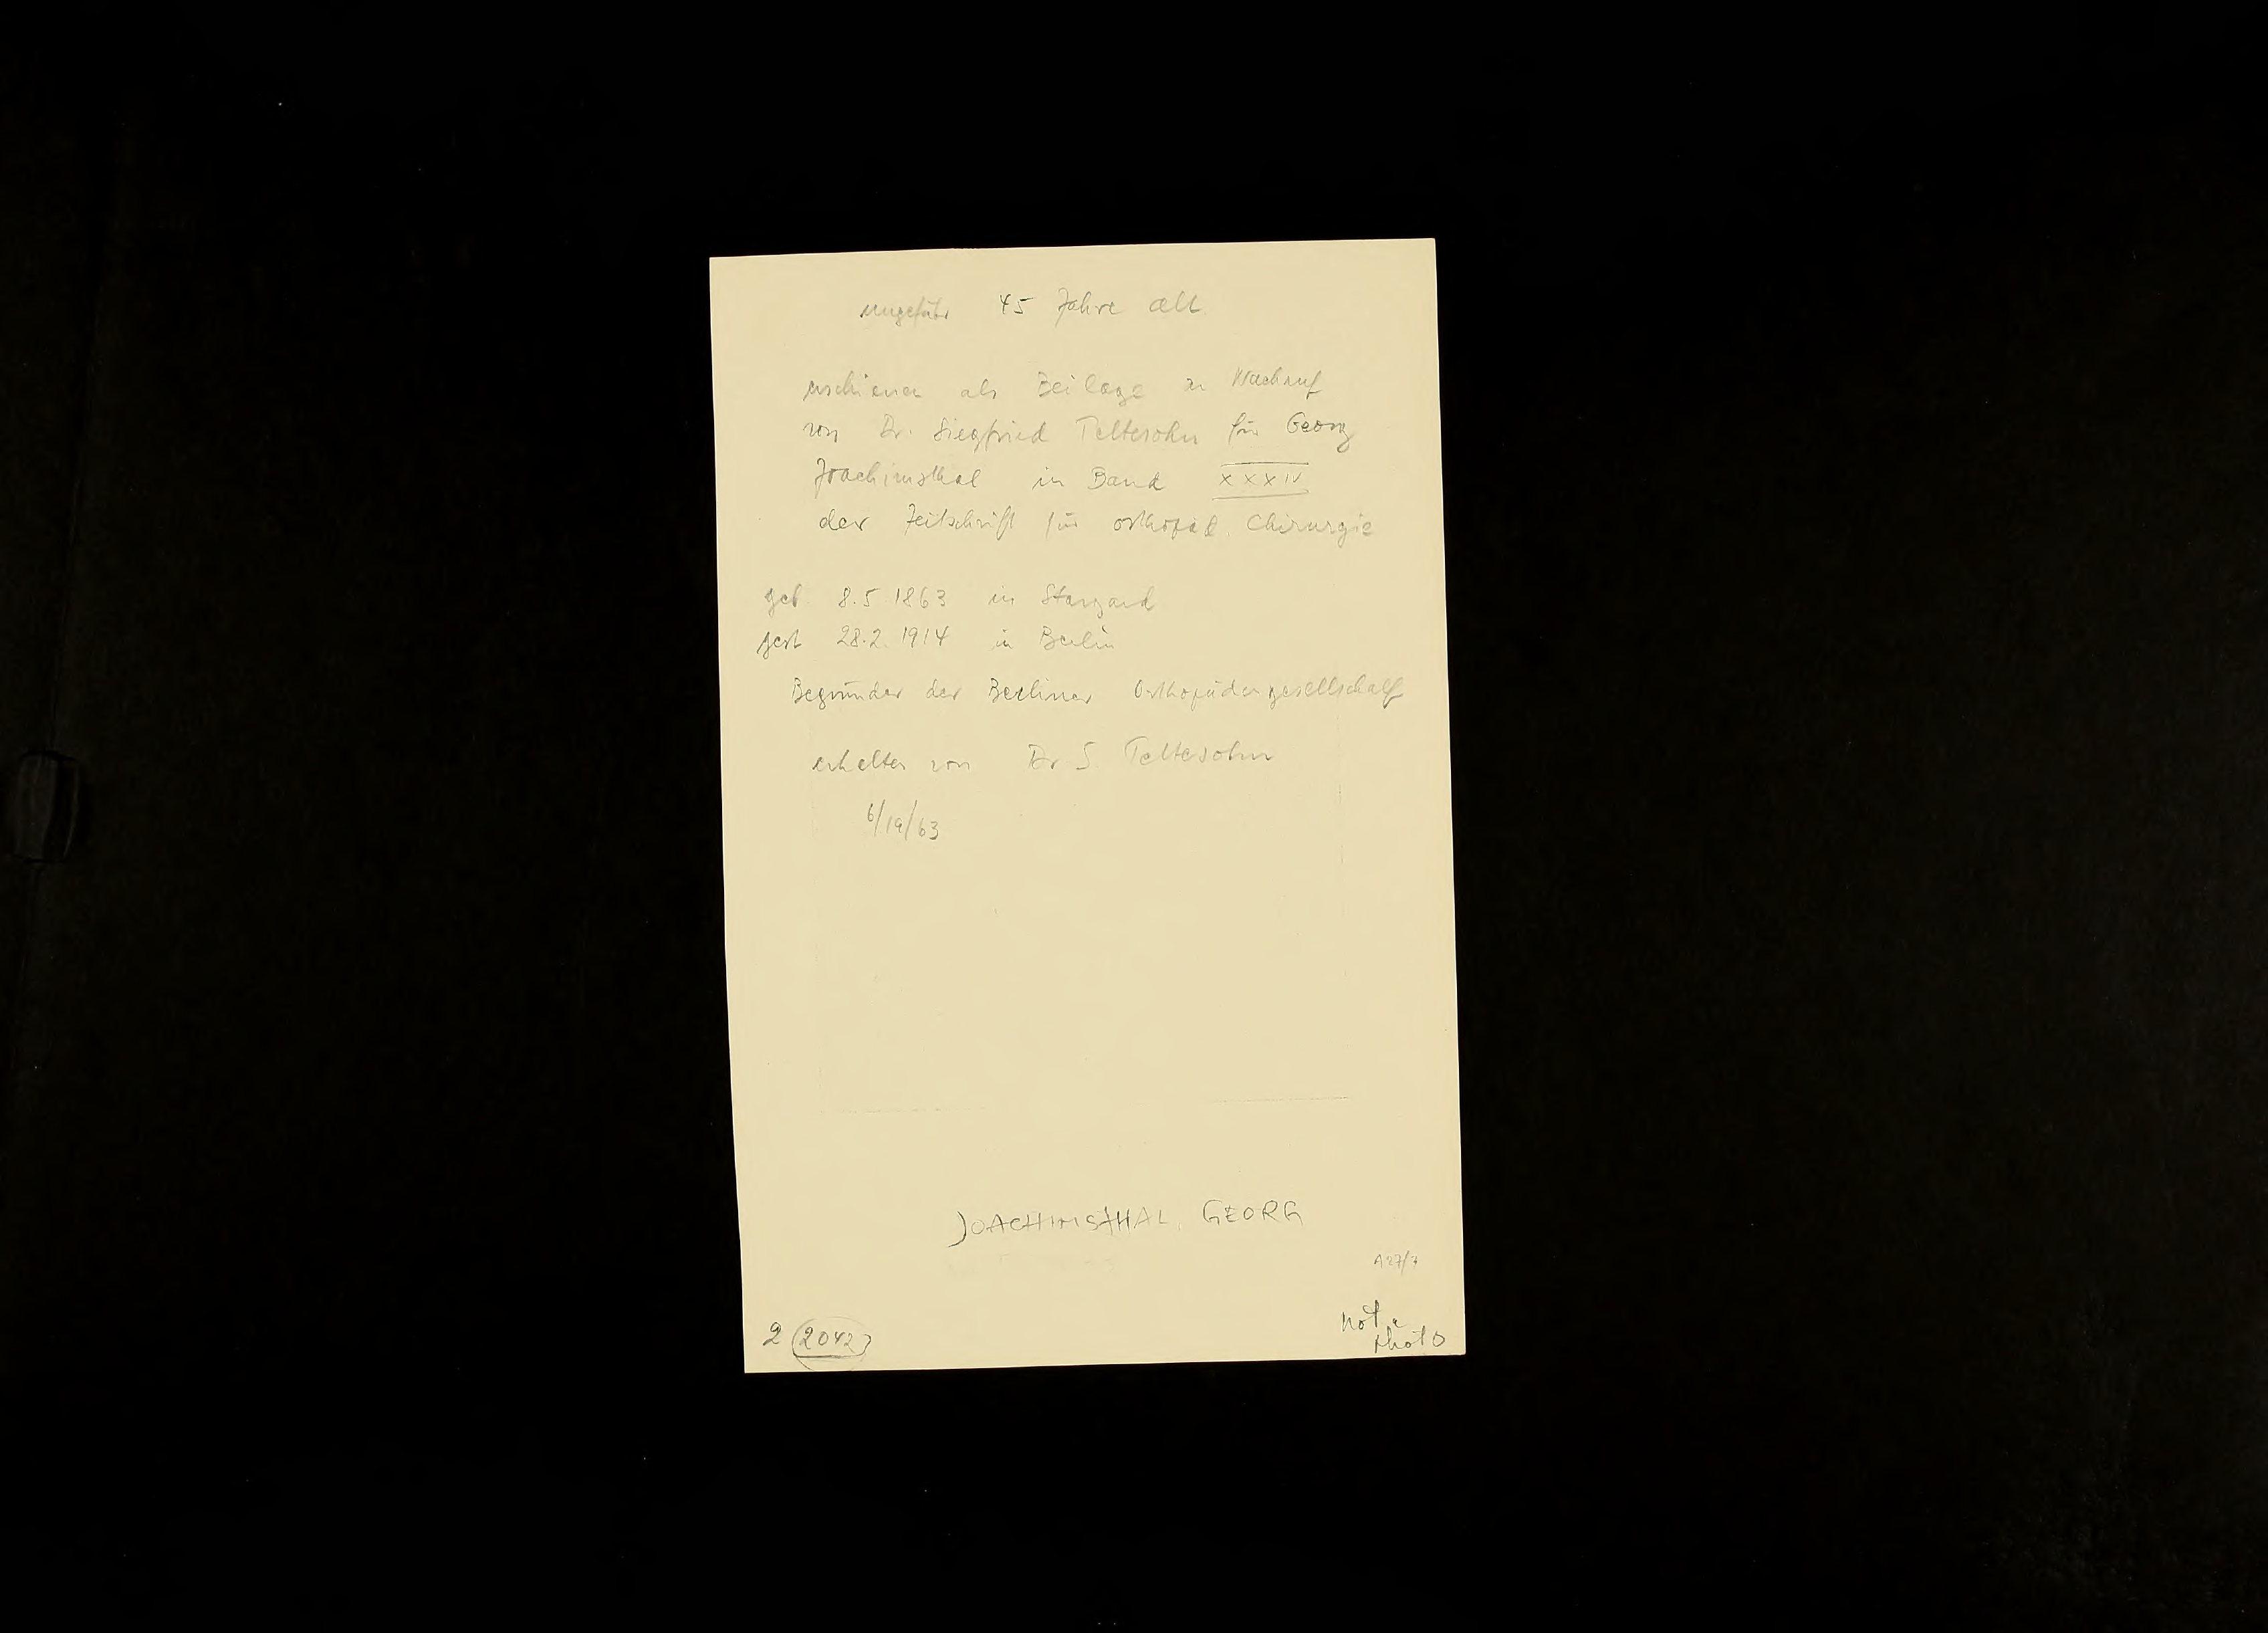 ungefähr 45 Jahre alt
erschienen als Beilage zu Nachruf
von Dr. Siegfried Peltesohn für Georg
Joachimsthal in Band XXXIV
der Zeitschrift für orthopäd. Chirurgie
geb 8.5.1863 in Stargard
gest 28.2.1914 in Berlin
Begründer der Berliner Orthopädengesellschaft
erhalten von Dr S. Peltesohn
6/19/63
JOACHIMSTHAL, GEORG
A27/7
not a
photo
2 2042